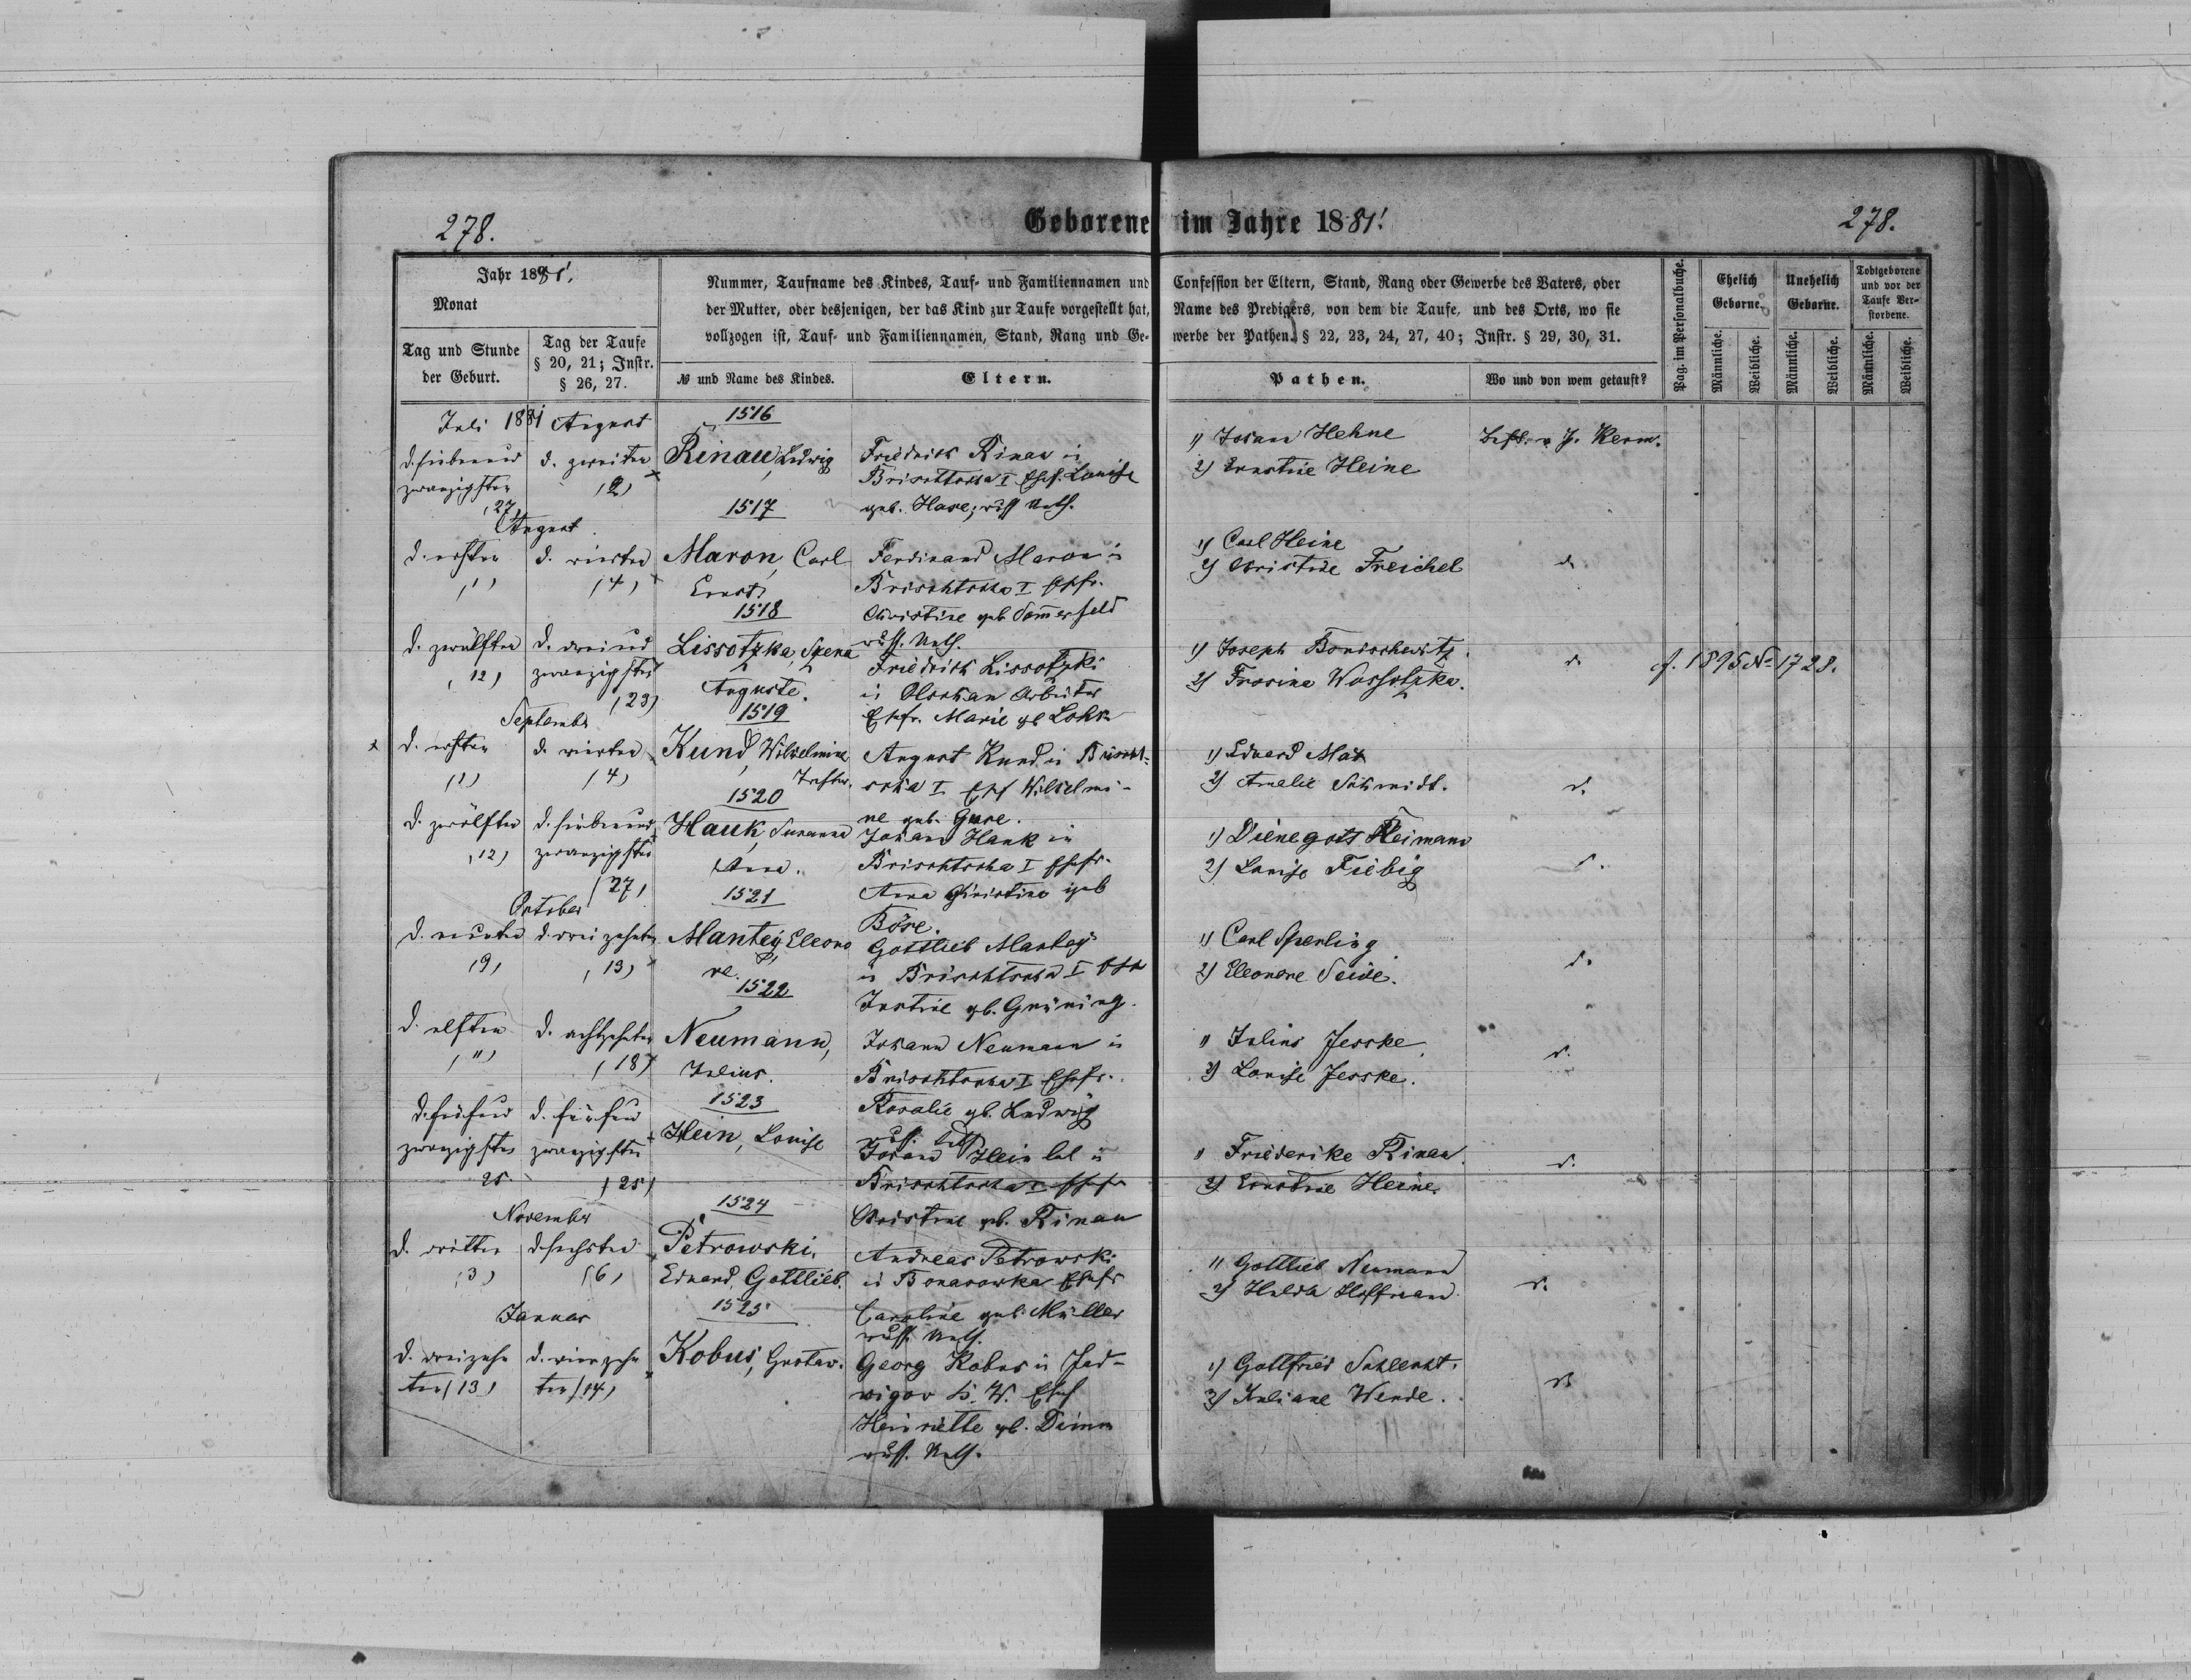 278.
Geborene im Jahre 1881.
278.
Jahr 1881.
Monat
Tag und Stunde der Geburt.
Tag der Taufe § 20, 21; Instr. § 26, 27.
Nummer, Taufname des Kindes, Tauf- und Familiennamen und
der Mutter, oder desjenigen, der das Kind zur Taufe vorgestellt hat,
vollzogen ist, Tauf- und Familiennamen, Stand, Rang und Ge-
№ und Name des Kindes.
Eltern.
Confession der Eltern, Stand, Rang oder Gewerbe des Vaters, oder
Name des Predigers, von dem die Taufe, und des Orts, wo sie
werbe der Pathen. § 22, 23, 24, 27, 40; Instr. § 29, 30, 31.
Pathen.
Wo und von wem getauft?
Pag. im Personalbuche.
Ehelich Geborne.
Unehelich Geborne.
Todtgeborene und vor der Taufe Verstorbene.
Männliche.
Weibliche.
Männliche.
Weibliche.
Männliche.
Weibliche.
Juli 1881 August
1516
d. siebenund
zwanzigsten
27
d. zweiten
(2)
Rinau, Ludwig
Friedrich Rinau in
Brischtscha I Ehef. Louise
geb. Hase,
1) Johann Hehne
2) Ernstine Heine
August
1517
d. ersten
(1)
d. vierten
(4)
Maron, Carl
Ernst
Ferdinand Maron in
Brischtscha I Ehfr.
Christine geb. Sommerfeld
1) Carl Heine
2) Christine Freichel
d.
1518
d. zwölften
(12)
d. dreiund
zwanzigsten
(23)
Lissotzka,
Auguste.
Friedrich Lissotzki
in Arbeiter
Ehfr. Marie gb
1) Joseph
2) Frosina Wossotzka.
d.
f. 1895 № 1728.
September
1519
d. ersten
(1)
d. vierten
(4)
Kund, Wilhelmine
August Kund in Brischt-
scha I Ehf Wilhelmi-
ne geb.
1) Eduard
2) Amalie Schmidt.
d.
1520
d. zwölften
(12)
d. siebenund
zwanzigsten
(27)
Hauk, Susanna
Anna.
Johann Hauk in
Brischtscha I Ehefr.
Anna Christine geb
Böse.
1) Dienegott Heimann
2) Louise Fiebig
d.
October
1521
d. neunten
(9)
d. dreizehnten
(13)
Mantey, Eleono
re.
Gottlieb Mantey
in Brischtscha I
Justine gb. Grüning.
1) Carl Sperling
2) Eleonore Seide.
d.
1522
d. elften
(11)
d. achtzehnten
(18)
Neumann,
Julius.
Johann Neumann in
Brischtscha I Ehefr.
Rosalie gb. Ludwig
1) Julius Jesske
2) Louise Jesske.
d.
1523
d. fünfund
zwanzigsten
25
d. fünfund
zwanzigsten
(25)
Hein, Louise
Johann Hein in
Brischtscha I Ehefr
Christine gb. Rinau
1) Friederike Rinau.
2) Ernstine Heine.
d.
November
1524
d. dritten
(3)
d. sechsten
(6)
Petrowski,
Eduard, Gottlieb.
Andreas Petrowski
in Bonasowka Ehefr
Caroline geb. Müller
1) Gottlieb Neumann
2) Hulda Hoffmann.
d.
Januar
1525
d. dreizehn
ten (13)
d. vierzehn
ten (14)
Kobus, Gustav.
Georg Kobus in Jad-
wigow
Henriette gb. Dimm
1) Gottfried Schlecht.
2) Juliane Wende.